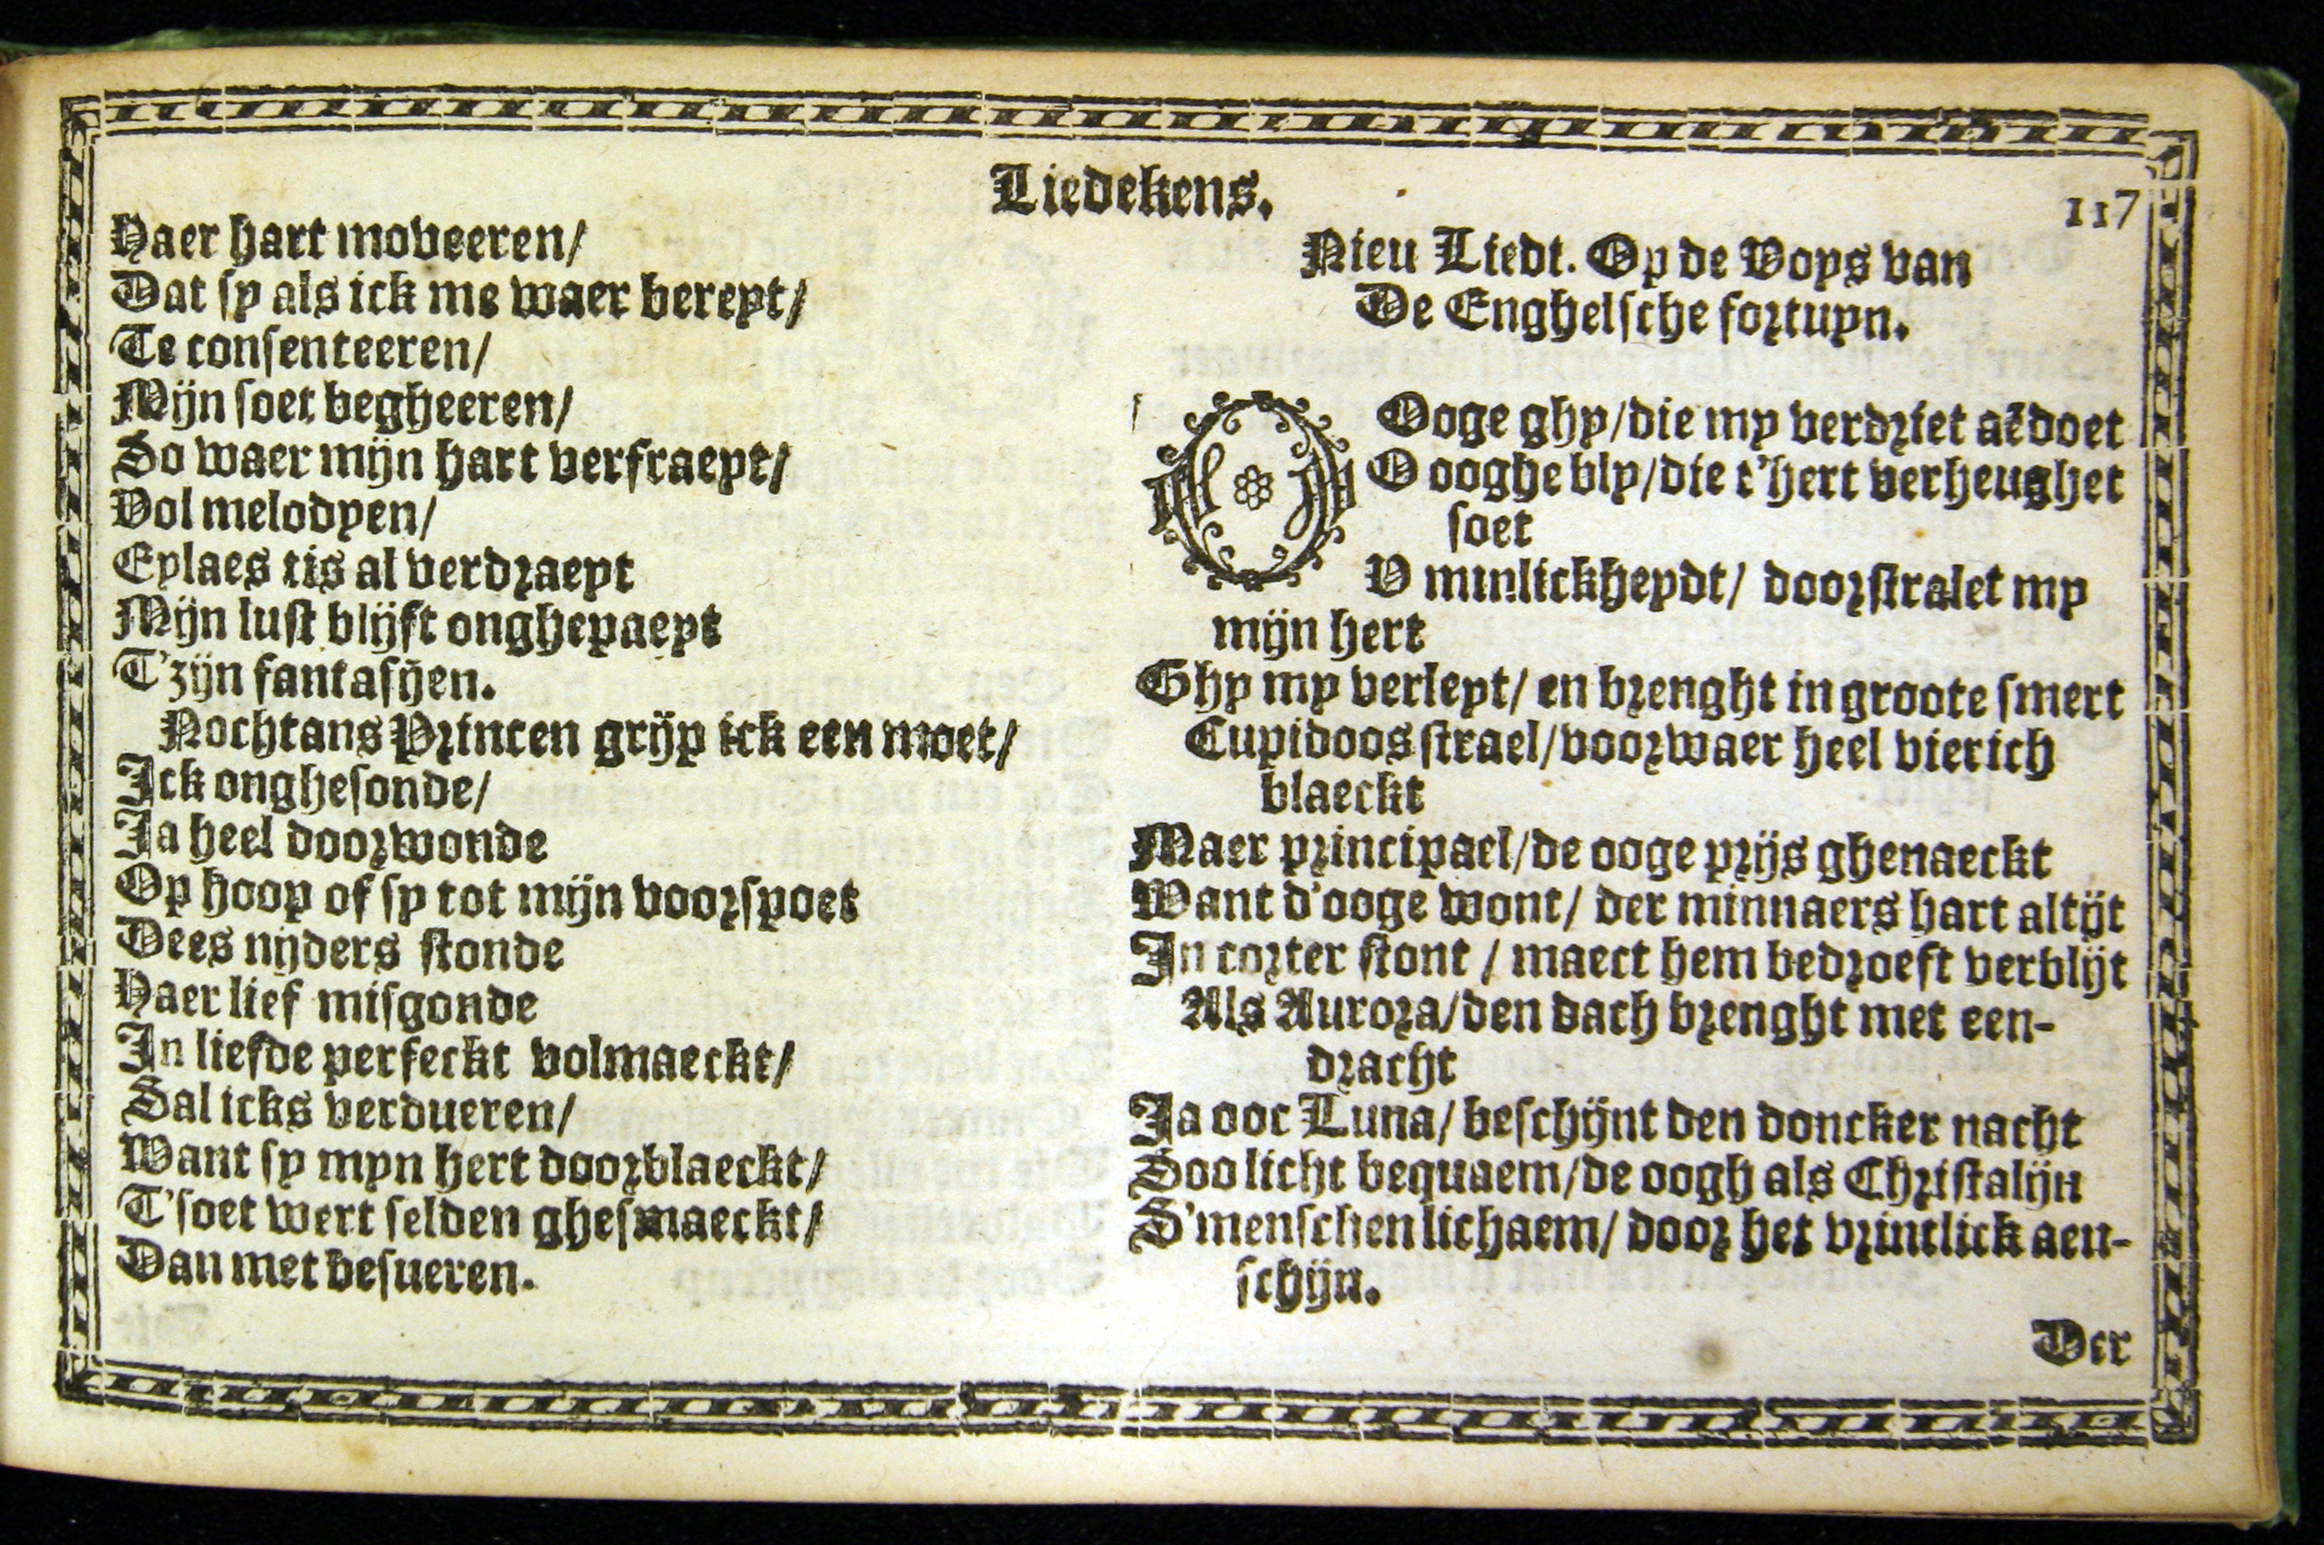 Liedekens.
117
Haer hart moveeren/
Dat sy als ick me waer bereyt/
Te consenteeren/
Mijn soet begheeren/
So waer mijn hart verfraeyt/
Vol melodyen/
Eylaes tis al verdraeyt
Mijn lust blijft onghepaeyt
T'zijn fantasijen.
Nochtans Princen grijp ick een moet/
Ick onghesonde/
Ja heel doorwonde
Op hoop of sy tot mijn voorspoet
Dees nijders stonde
Haer lief misgonde
In liefde perfeckt volmaeckt/
Sal icks verdueren/
Want sy myn hert doorblaeckt/
T'soet wert selden ghesmaeckt/
Dan met besueren.
Nieu Liedt. Op de Voys van
De Enghelsche fortuyn.
O Ooge ghy/die my verdriet aẽdoet
O ooghe bly/die t'hert verheughet
soet
V minlickheydt/ doorstralet my
mijn hert
Ghy my verleyt/ en brenght in groote smert
Cupidoos strael/voorwaer heel vierich
blaeckt
Maer principael/de ooge prijs ghenaeckt
Want d'ooge wont/ der minnaers hart altijt
In corter stont / maect hem bedroeft verblijt
Als Aurora/den dach brenght met een-
dracht
Ja ooc Luna/ beschijnt den doncker nacht
Soo licht bequaem/de oogh als Christalijn
S'menschen lichaem/ door het vrintlick aen-
schijn.
Der